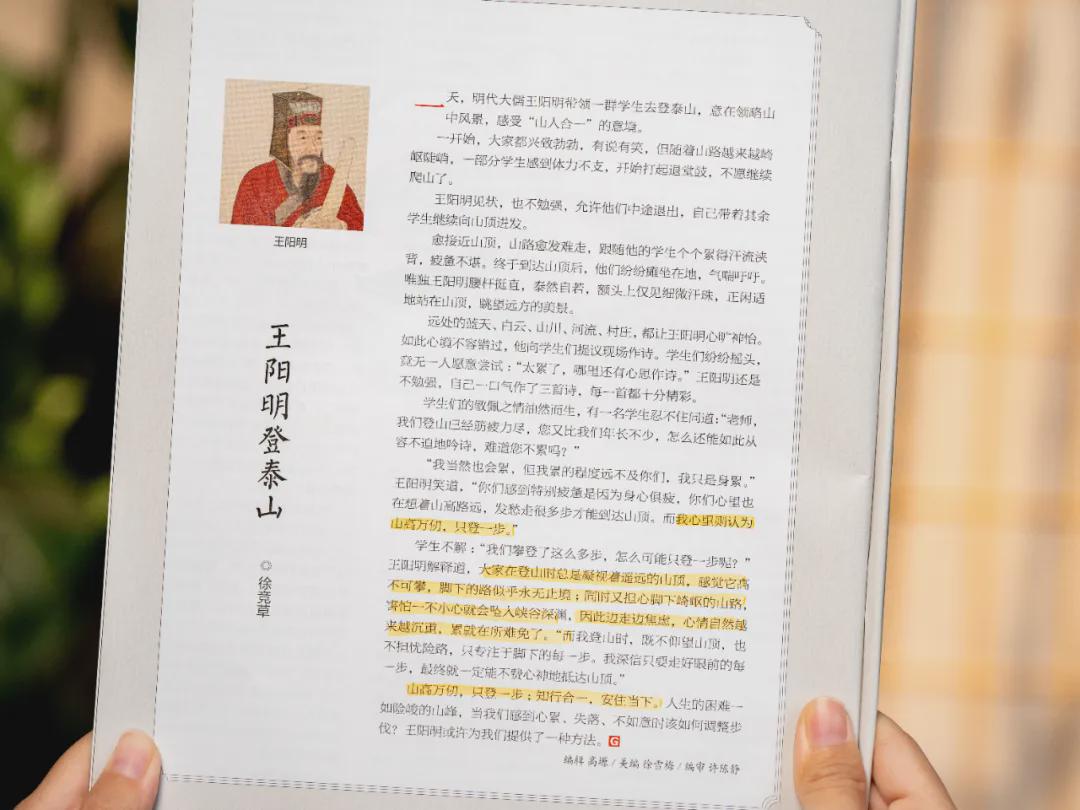 王阳明
王阳明登泰山
◎徐竞草
一天，明代大儒王阳明带领一群学生去登泰山，意在领略山
中风景，感受“山人合一”的意境。
一开始，大家都兴致勃勃，有说有笑，但随着山路越来越崎
岖陡峭，一部分学生感到体力不支，开始打起退堂鼓，不愿继续
爬山了。
王阳明见状，也不勉强，允许他们中途退出，自己带着其余
学生继续向山顶进发。
愈接近山顶，山路愈发难走，跟随他的学生个个累得汗流浃
背，疲惫不堪。终于到达山顶后，他们纷纷瘫坐在地，气喘吁吁。
唯独王阳明腰杆挺直，泰然自若，额头上仅见细微汗珠，正闲适
地站在山顶，眺望远方的美景。
远处的蓝天、白云、山川、河流、村庄，都让王阳明心旷神怡。
如此心境不容错过，他向学生们提议现场作诗。学生们纷纷摇头，
竟无一人愿意尝试：“太累了，哪里还有心思作诗。”王阳明还是
不勉强，自己一口气作了三首诗，每一首都十分精彩。
学生们的敬佩之情油然而生，有一名学生忍不住问道：“老师，
我们登山已经筋疲力尽，您又比我们年长不少，怎么还能如此从
容不迫地吟诗，难道您不累吗？”
“我当然也会累，但我累的程度远不及你们，我只是身累。”
王阳明笑道，“你们感到特别疲惫是因为身心俱疲，你们心里也
在想着山高路远，发愁走很多步才能到达山顶。而我心里则认为
山高万仞，只登一步。”
学生不解：“我们攀登了这么多步，怎么可能只登一步呢？”
王阳明解释道，大家在登山时总是凝视着遥远的山顶，感觉它高
不可攀，脚下的路似乎永无止境；同时又担心脚下崎岖的山路，
害怕一不小心就会坠入峡谷深渊，因此边走边焦虑，心情自然越
来越沉重，累就在所难免了。“而我登山时，既不仰望山顶，也
不担忧险路，只专注于脚下的每一步。我深信只要走好眼前的每
一步，最终就一定能不费心神地抵达山顶。”
山高万仞，只登一步；知行合一，安住当下。人生的困难一
如险峻的山峰，当我们感到心累、失落、不如意时该如何调整步
伐？王阳明或许为我们提供了一种方法。G
编辑 高娜 / 美编 徐雪梅 / 编审 许陈静